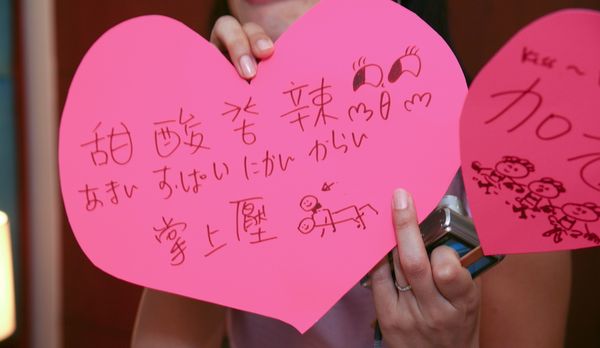 甜 酸 苦 辣
あまい すっぱい にかい からい
掌上壓
Kiss~
加